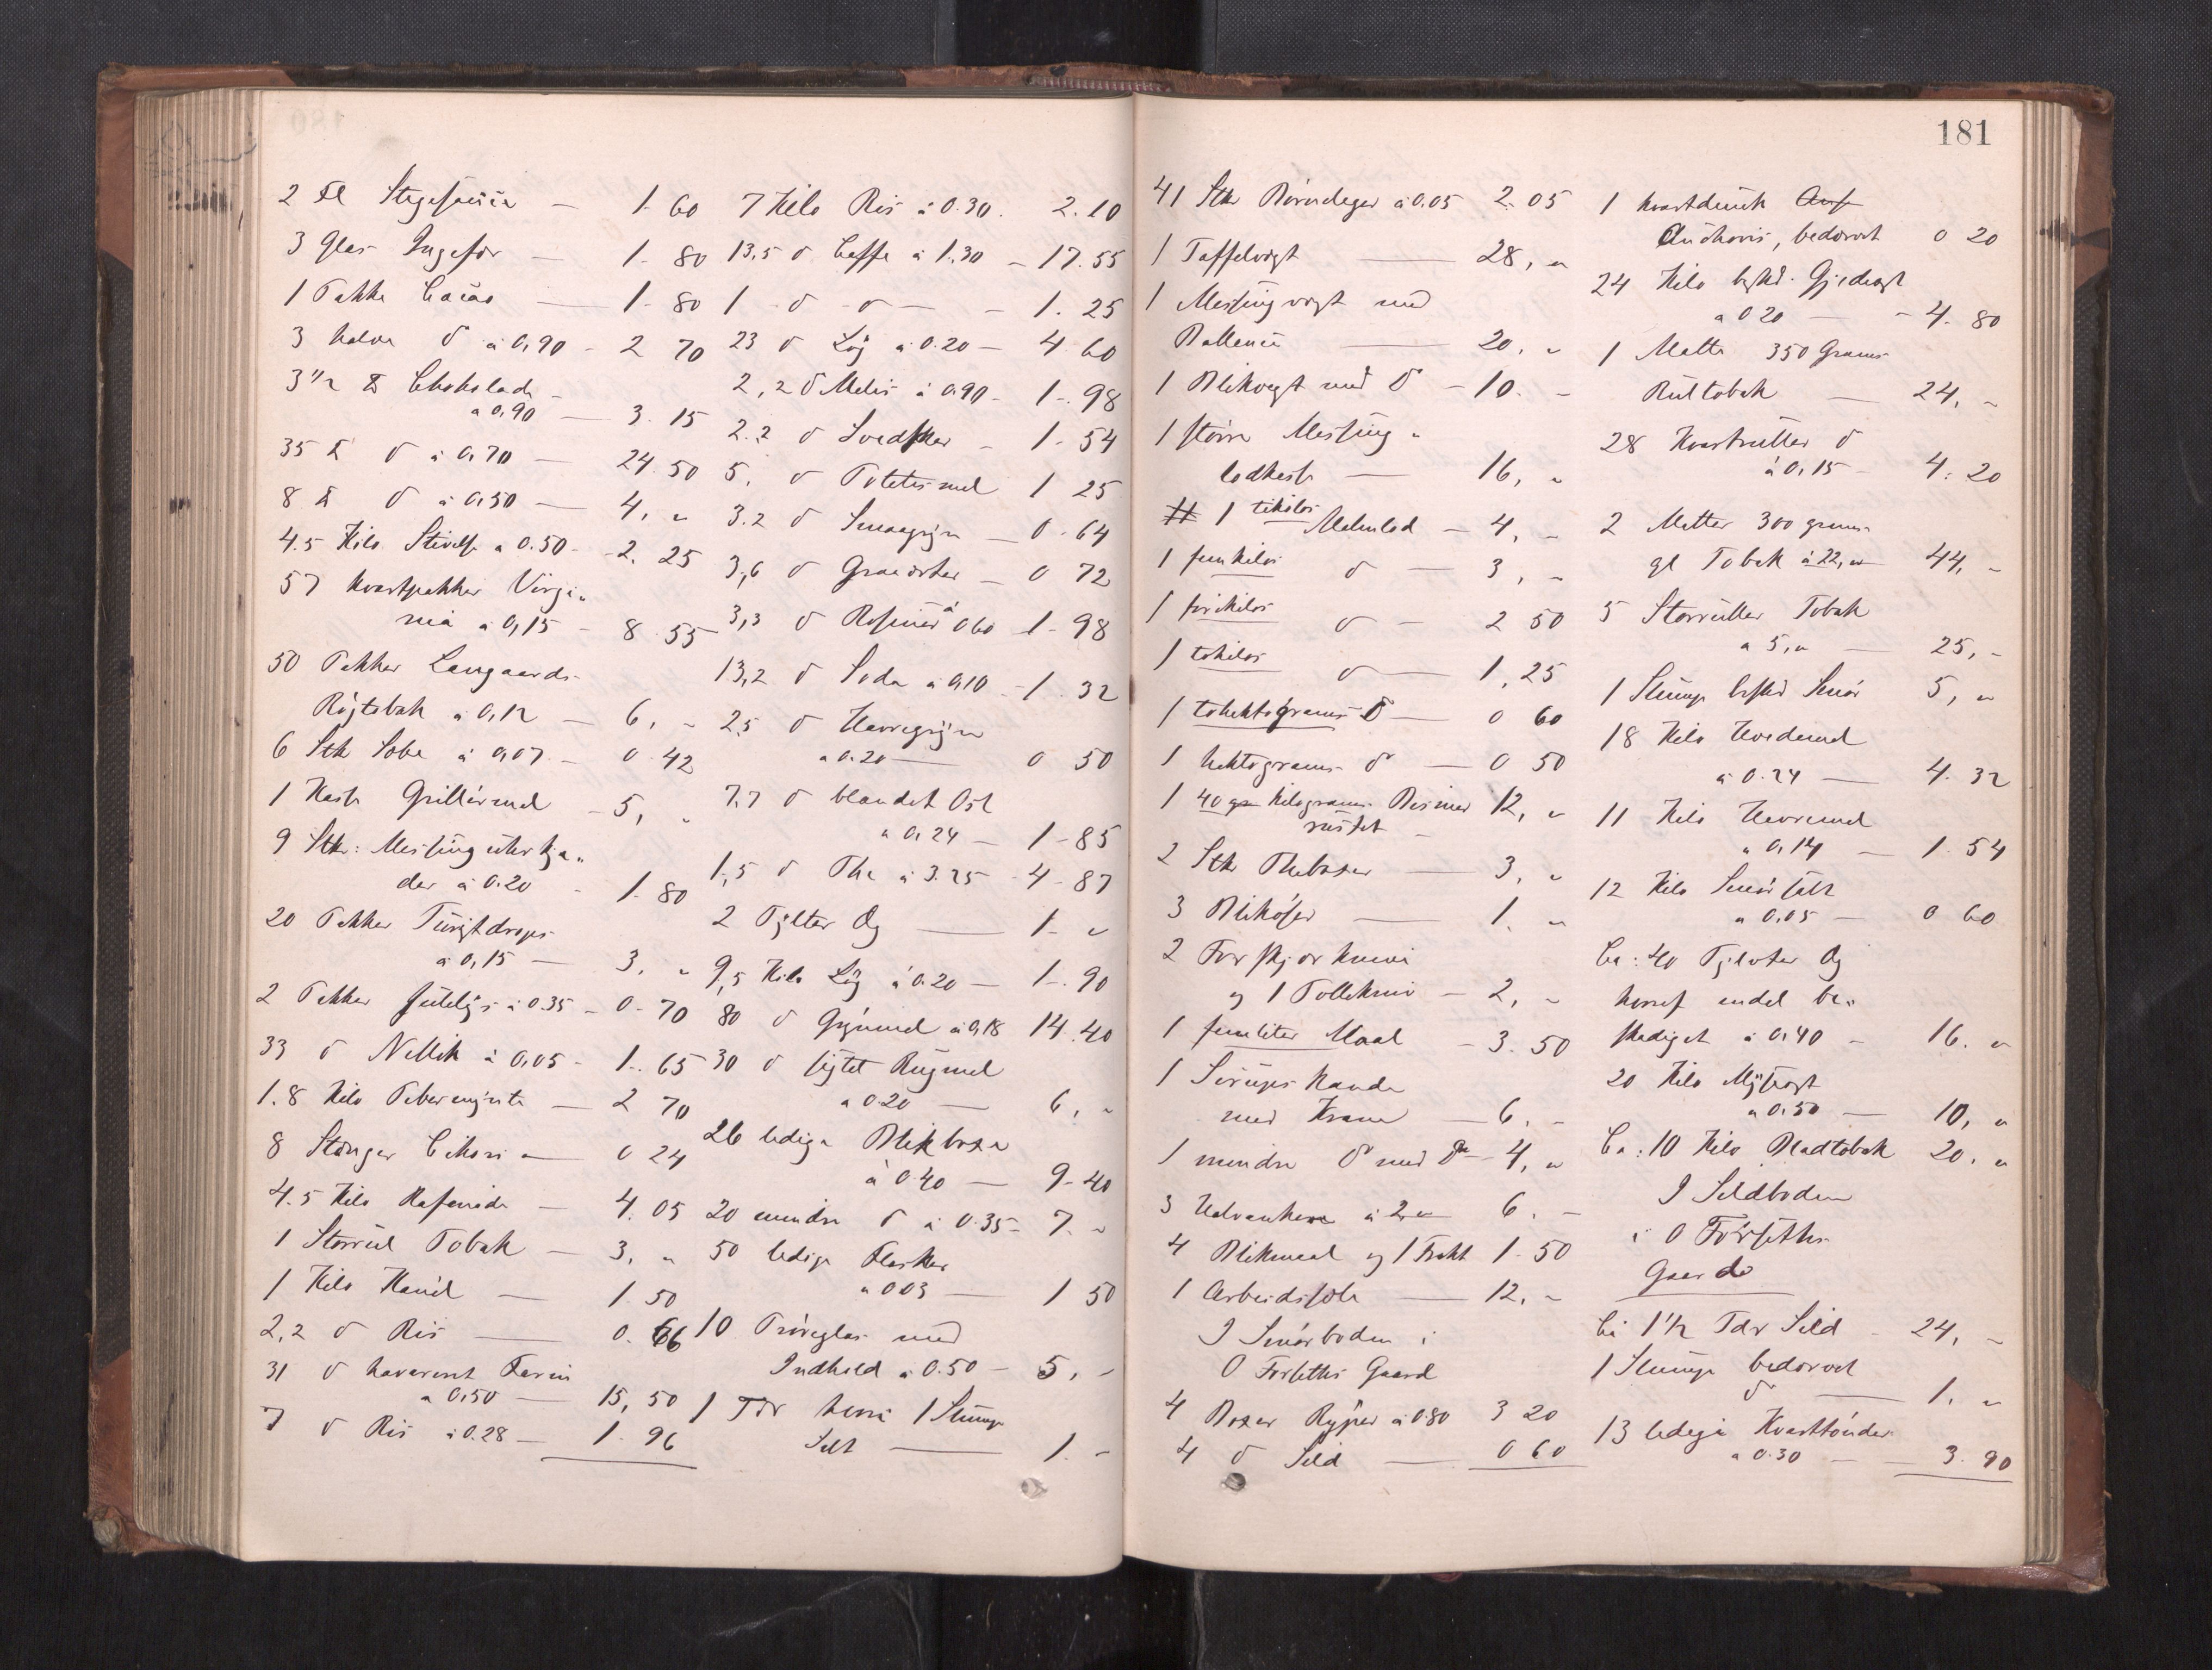 181
2 Fl Stegesauce — 1. 60
3 Glas Ingefør — 1. 80
1 Pakke Cacao — 1. 80
3 halve d à 0,90 - 2 70
3 1/2 ℔ Chokolade
a 0,90 — 3. 15
35 ℔ d à 0,70 — 24. 50
8 ℔ d à 0,50 — 4, "
4.5 Kilo Stivelse a 0.50 - 2. 25
57 Kvartpakker Virgi„
nia à 0,15 - 8. 55
50 Pakker Langaards
Røgtobak à 0,12 — 6, "
6 Stk Sæbe à 0,07 - 0. 42
1 Kasse Grillérmel - 5, "
9 Stk: Messinguhrkjæ„
der à 0.20 - 1. 80
20 Pakker Turistdrops
à 0,15 — 3, "
2 Pakker à 0.35 - 0. 70
33 d Nellik à 0,05 - 1. 65
1.8 Kilo Pebermynte — 2 70
8 Stænger Cikori — 0 24
4.5 Kilo Rafenade — 4. 05
1 Storrul Tobak — 3, "
1 Kilo Kanel — 1. 50
2,2 d Ris — 0. 66
31 d havareret Farin
a 0,50 — 15, 50
7 d Ris à 0.28 — 1. 96
7 Kilo Ris à 0.30. 2. 10
13,5 d Caffe à 1,30 — 17. 55
1 - d - d — - 1. 25
23 d Løg à 0.20 — 4. 60
2,2 d Melis à 0.90 - 1. 98
2.2 d Svedsker - 1. 54
5, d Potetesmel 1 25
3.2 d Smaagryn — 0. 64
3,6 d Graaerter — 0 72
3,3 d Rosiner à 0.60 1. 98
13,2 d Soda à 0,10 - 1. 32
2,5 d Havregryn
a 0.20 — 0 50
7.7 d blandet Ost
a 0,24 — 1. 85
1,5 d The à 3.25 - 4. 87
2 Pjelter Og — 1. "
9,5 Kilo Løg à 0.20 — 1. 90
80 d Grynmel à 0,18 14. 40
30 d sigtet Rugmel
a 0.20 — 6, "
26 ledige Blikboxe
à 0.40 — 9. 40
20 mindre d à 0.35 - 7. "
50 ledige Flasker
a 0.03 — 1 50
10 Prøveglas med
Indhold à 0.50 — 5, "
1 Tdr hvori 1 Slump
Salt — 1. "
41 Stk à 0.05 2. 05
1 Taffelvægt — 28, "
1 Messingvægt med
Ballance — 20, "
1 Blikvægt med d - 10. -
1 større Messing„
lodkasse — 16, "
1 tikilos
Malmlod — 4, -
1 femkilos d — 3, -
1 firekilos d — 2 50
1 tokilos d — 1,25
1 tohektograms d — 0 60
1 hektograms d — 0 50
1 40 Kilograms Bismer 12, "
rustet
2 Stk Theboxer — 3, "
3 Blikøser — 1. "
2 Forskjærknive
og 1 Tollekniv — 2, -
1 femliter Maal - 3. 50
1 Sirupskande
med Krane — 6. -
1 mindre d med d — 4, "
3 à 2 " 6. -
4 Blikmaal og 1 Trakt 1. 50
1 — 12, -
I Smørboden i
O Forseths Gaard
4 Boxer Ryper à 0.80 3 20
4 d Sild — 0 60
1 kvartdunk
Anchovis, bedærvet 0 20
24 Kilo besk. Gjedeost
a 0.20 — 4. 80
1 Matte 350 Grams
Rultobak — 24, -
28 Kvartruller d
à 0,15 - 4. 20
2 Matter 300 grams
gl Tobak à 22, " 44, -
5 Storruller Tobak
a 5, " — 25, -
1 Slump besked Smør 5, "
18 Kilo Hvedemel
à 0.24 — 4. 32
11 Kilo Havremel
a 0,14 — 1. 54
12 Kilo Smørsalt
a 0,05 — 0 60
Ca: 40 Pjelter Og
hvoraf endel be„
skadiget à 0,40 - 16. "
20 Kilo Mysost
a 0.50 — 10, "
Ca: 10 Kilo Bladtobak 20. "
I Sildboden
i O Forseths
Gaard
Ca 1 1/2 Tdr Sild - 24, -
1 Slump bedærvet
d — 1. "
13 ledige Kvarttønder
a 0.30 — 3. 90